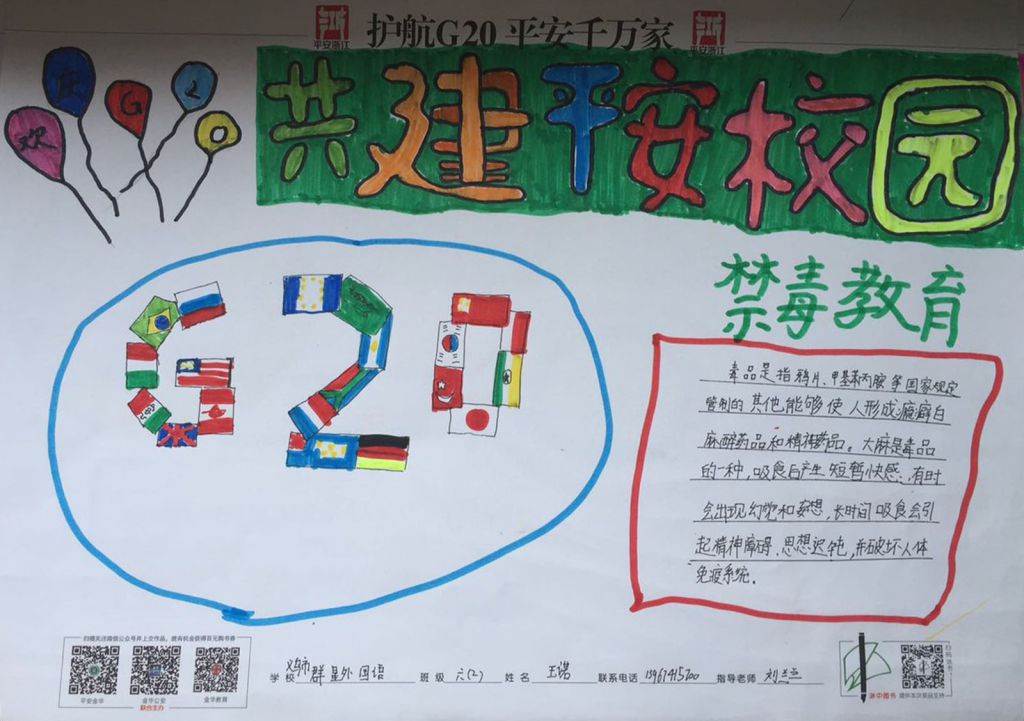 护航G20 平安千万家
平安浙江
平安浙江
欢 庆 G 2 0
共建平安校园
G20
禁毒教育
毒品是指鸦片、甲基苯丙胺等国家规定
管制的其他能够使人形成瘾癖白
麻醉药品和精神药品。大麻是毒品
的一种,吸食白产生短暂快感、有时
会出现幻觉和妄想,长时间吸食会引
起精神障碍、思想迟钝,并破坏人体
免疫系统。
扫描关注微信公众号并上交作品,就有机会获得百元购书券
平安金华 金华公安 金华教育
联合主办
学校 义乌市群星外国语 班级 六(2) 姓名 王诺 联系电话 指导老师 刘兰兰
浙中图书 提供本次奖品支持